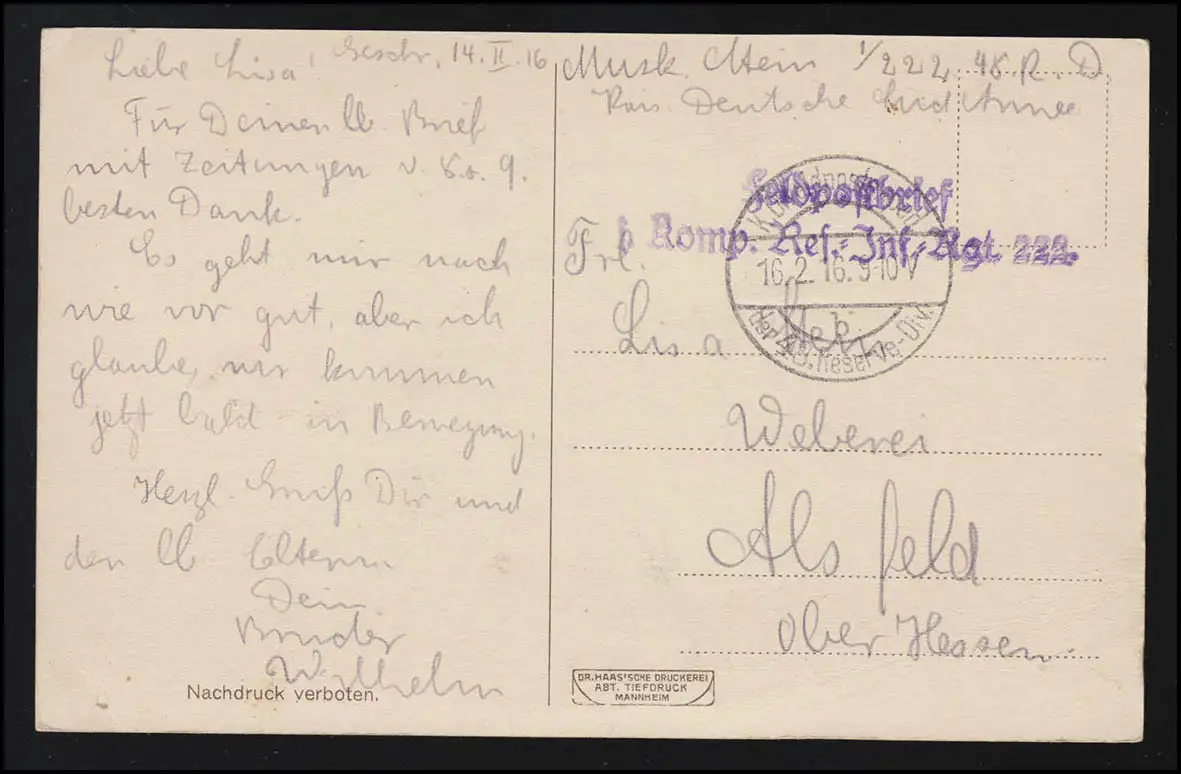 Liebe Lisa, Geschr. 14.II.16
Für Deinen lb. Brief
mit Zeitungen v. 8. u. 9.
besten Dank.
Es geht mir nach
wie vor gut, aber ich
glaube, wir kommen
jetzt bald in Bewegung.
Herzl. Gruß Dir und
den lb. Eltern
Dein
Bruder
Wilhelm
Nachdruck verboten.
Musk. Stein 1/222 48 R. D
Kais Deutsche Süd Armee
Feldpostbrief
Komp. Res.-Inf.-Rgt. 222.
K.D. Feldpost
16.2.16. 9-10V
b
der 48. Reserve-Div.
Frl.
Lisa Stein
Weberei
Alsfeld
Ober Hessen.
DR. HAAS'SCHE DRUCKEREI
ABT. TIEFDRUCK
MANNHEIM